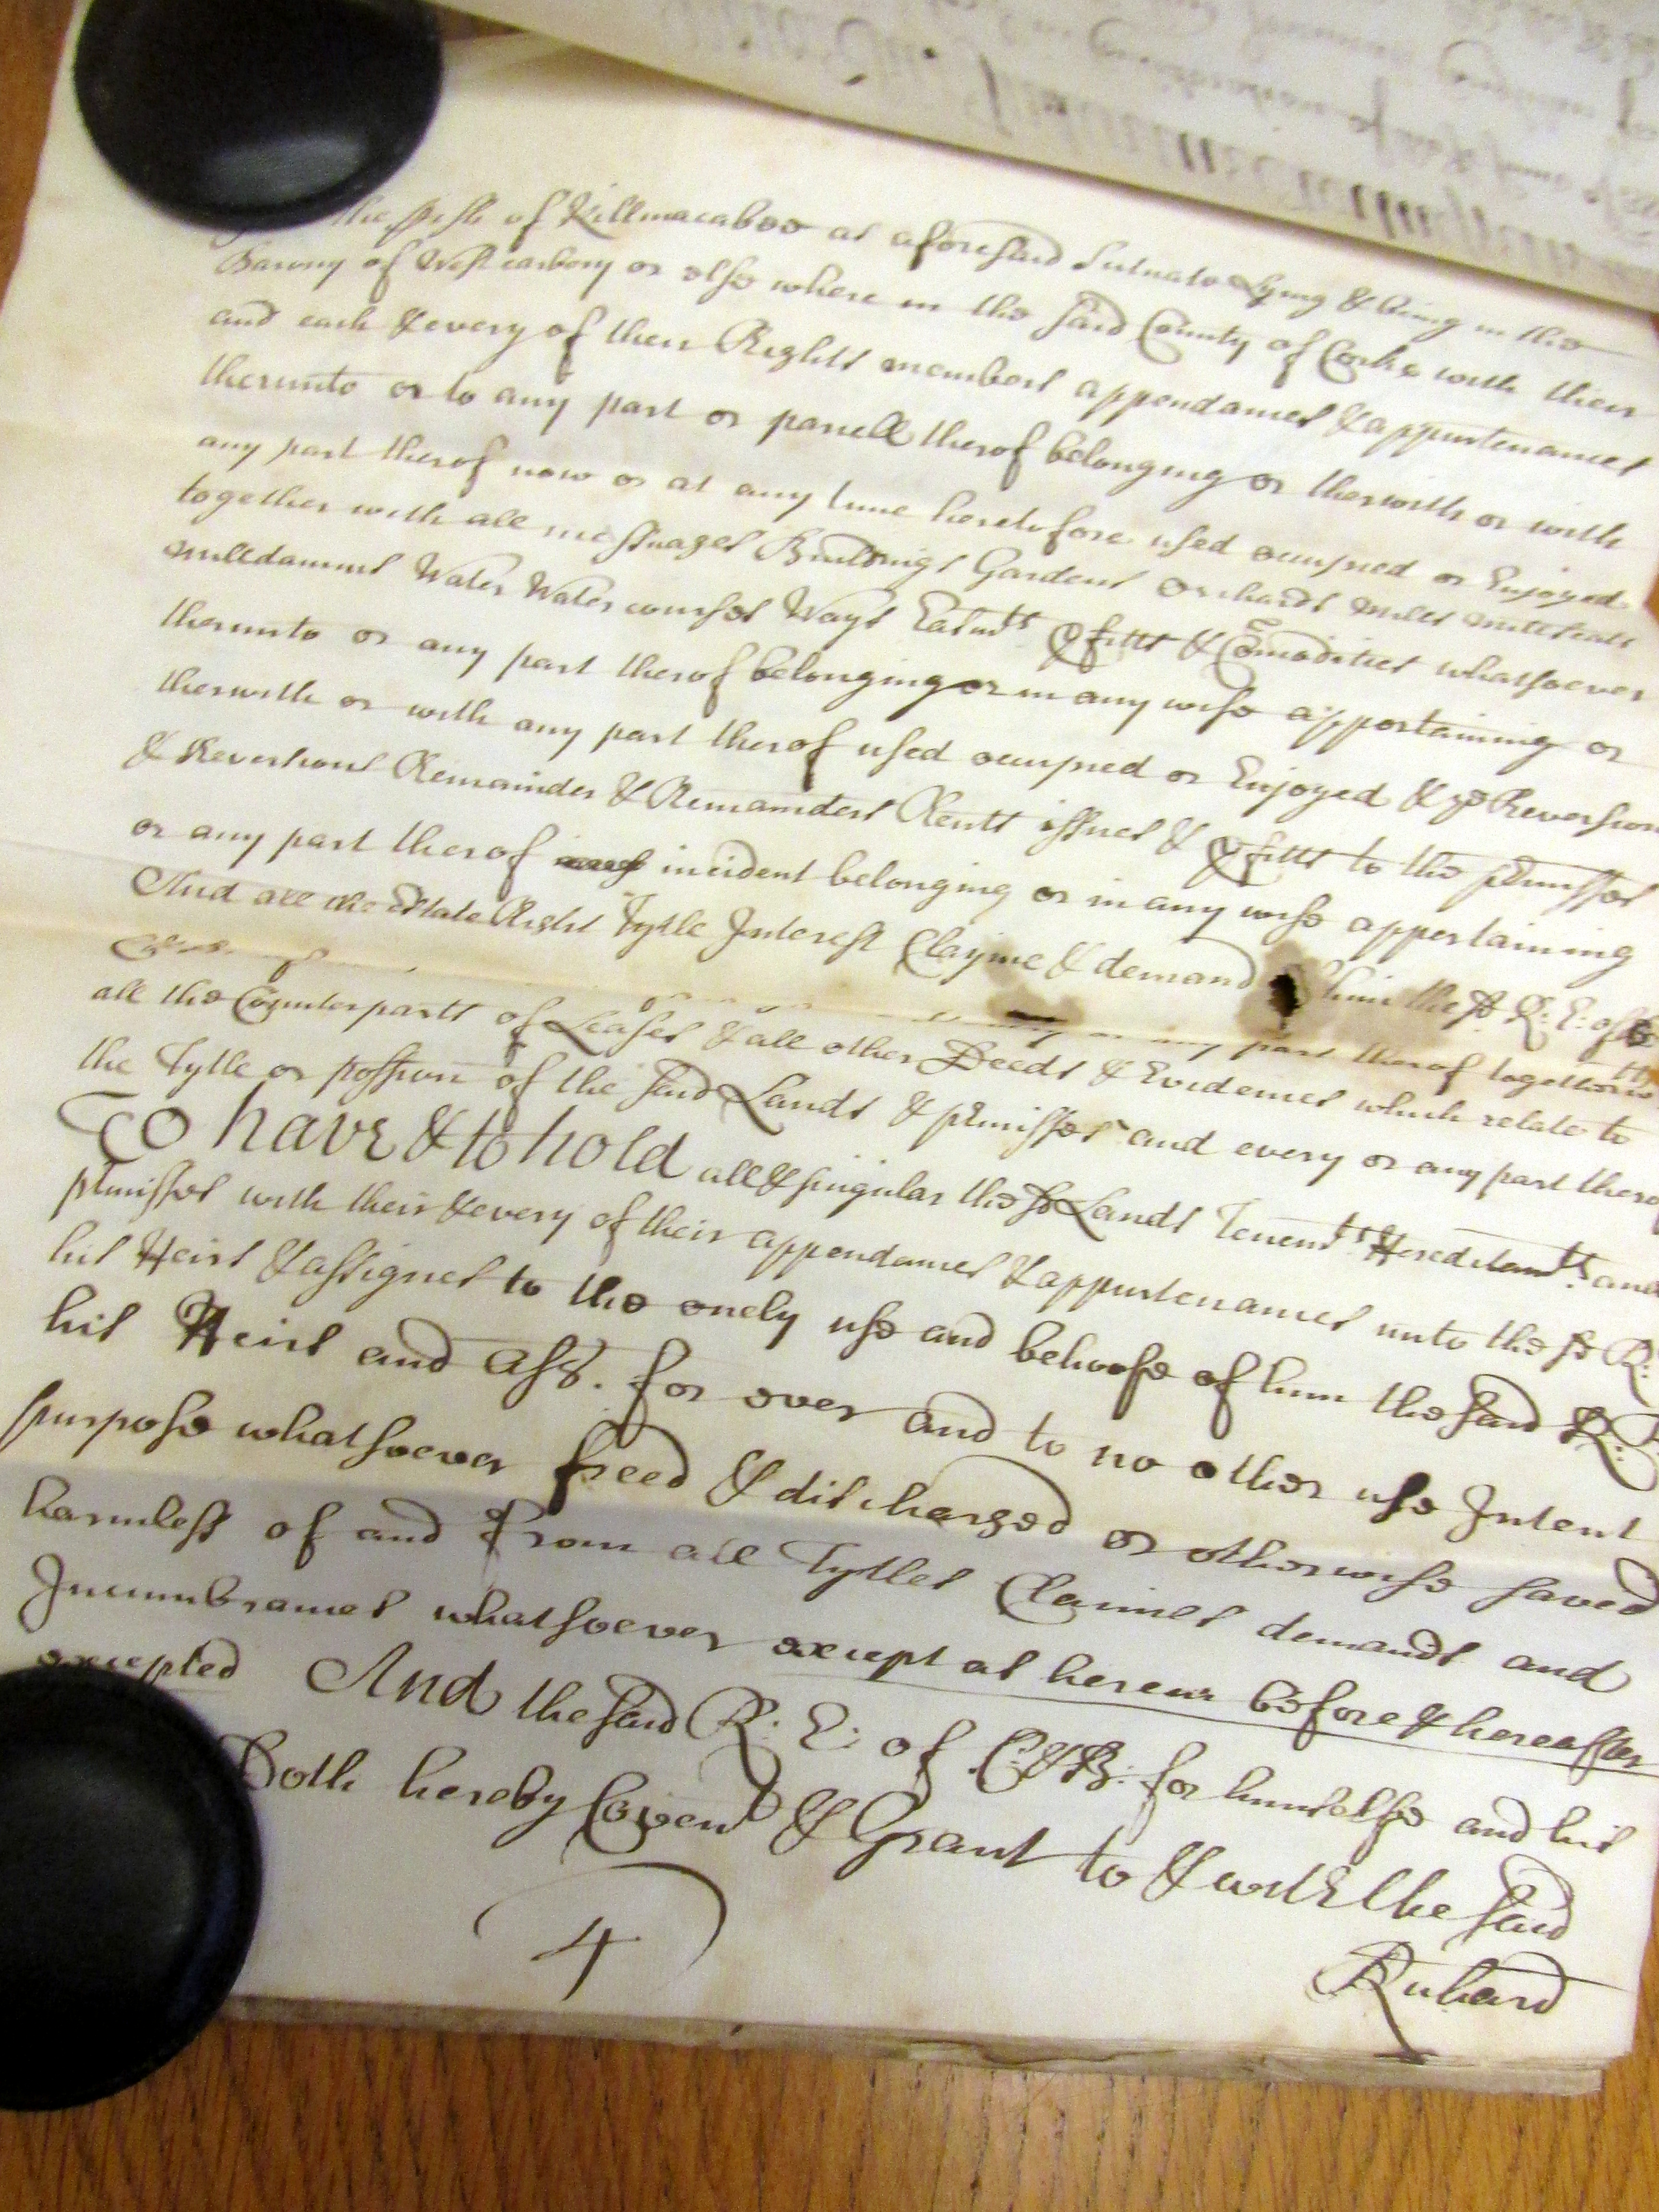 the pish of Killmacaboo as aforesaid Scituate Lying & being in the
Barony of West carbery or else where in the said County of Corke with their
and each & every of their Rights members appendances & appurtenances
therunto or to any part or parcell therof belonging or therwith or with
any part therof now or at any time heretofore used occupied or Enjoyed
together with all messuages Buildings Gardens Orchards mills millseats
milldamms Water Water courses Ways Easmts pfitts & Comodities whatsoever
therunto or any part therof belonging or in any wise appertaining or
therwith or with any part therof used occupied or Enjoyed & ye Reversion
& Reversions Remainder & Remainders Rents issues & pfitts to the pmisses
or any part therof incident belonging or in any wise appertaining
And all the Estate Right Tytle Interest Clayme & demand him the sd R: E: of
or any part therof together
all the Counterparts of Leases & all other Deeds & Evidences which relate to
the Tytle or possion of the said Lands & pmisses and every or any part
To have & to hold all & singular the sd Lands Tenemts Hereditamts and
pmisses with their & every of their appendances & appurtenances unto the sd R:
his Heirs & assignes to the onely use and behoofe of him the said R:
his Heirs and Ass. for ever and to no other use Intent
purpose whatsoever freed & discharged or otherwise saved
harmless of and From all Tytles Claimes demands and
Incumbrances whatsoever except as herein before & hereafter
excepted And the said R: E: of C: & B: for himselfe and his
Doth hereby Covent & Grant to & with the said
4
Richard